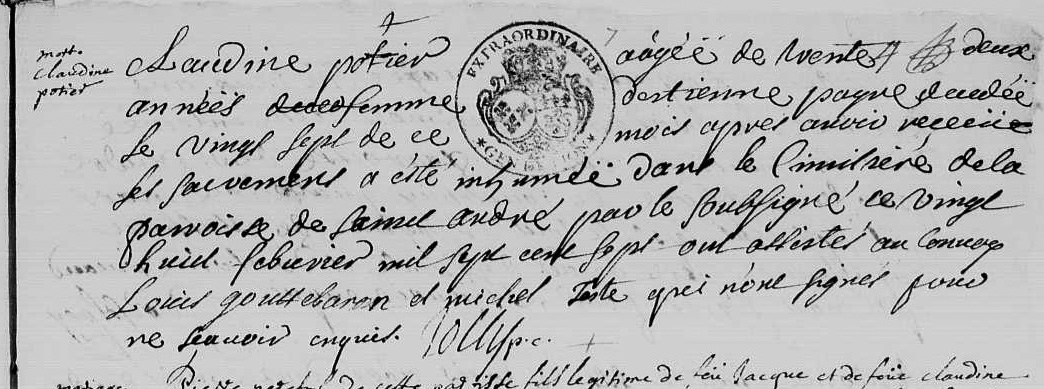 mort
claudine
potier
Claudine potier aagéë de trente deux
annéës femme d'estienne payre decedéë
le vingt sept de ce mois apres avoir receu
les sacremens a esté inhuméë dans le cimitiere de la
paroisse de saint andré par le soubsigné ce vingt
huict febvrier mil sept cent sept ont assistés au convoy
Louis gouttebaron et michel Teste qui n'ont signés pour
ne scavoir enquis. Jolly p.c.
EXTRAORDINAIRE
mariage
Pierre de cette parroisse fils legitime de feü Jacque et de feüe claudine